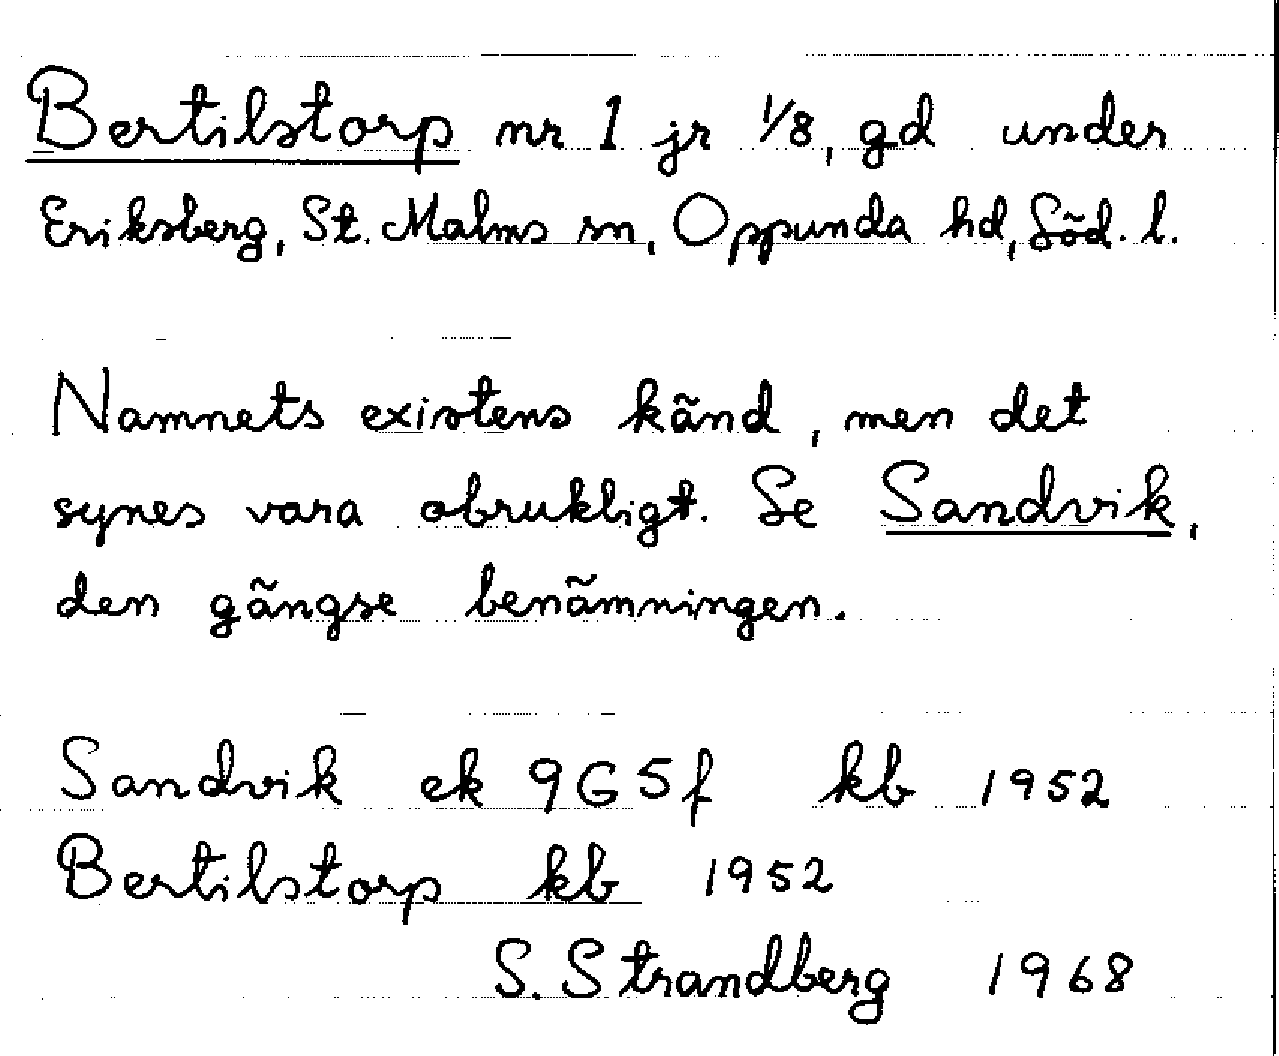 Bertilstorp nr 1 jr 1/8, gd under
Eriksberg, St. Malms sn, Oppunda hd, Söd. l.
Namnets existens känd, men det
synes vara obrukligt. Se Sandvik,
den gängse benämningen.
Sandvik ek 9G5f kb 1952
Bertilstorp kb 1952
S. Strandberg 1968